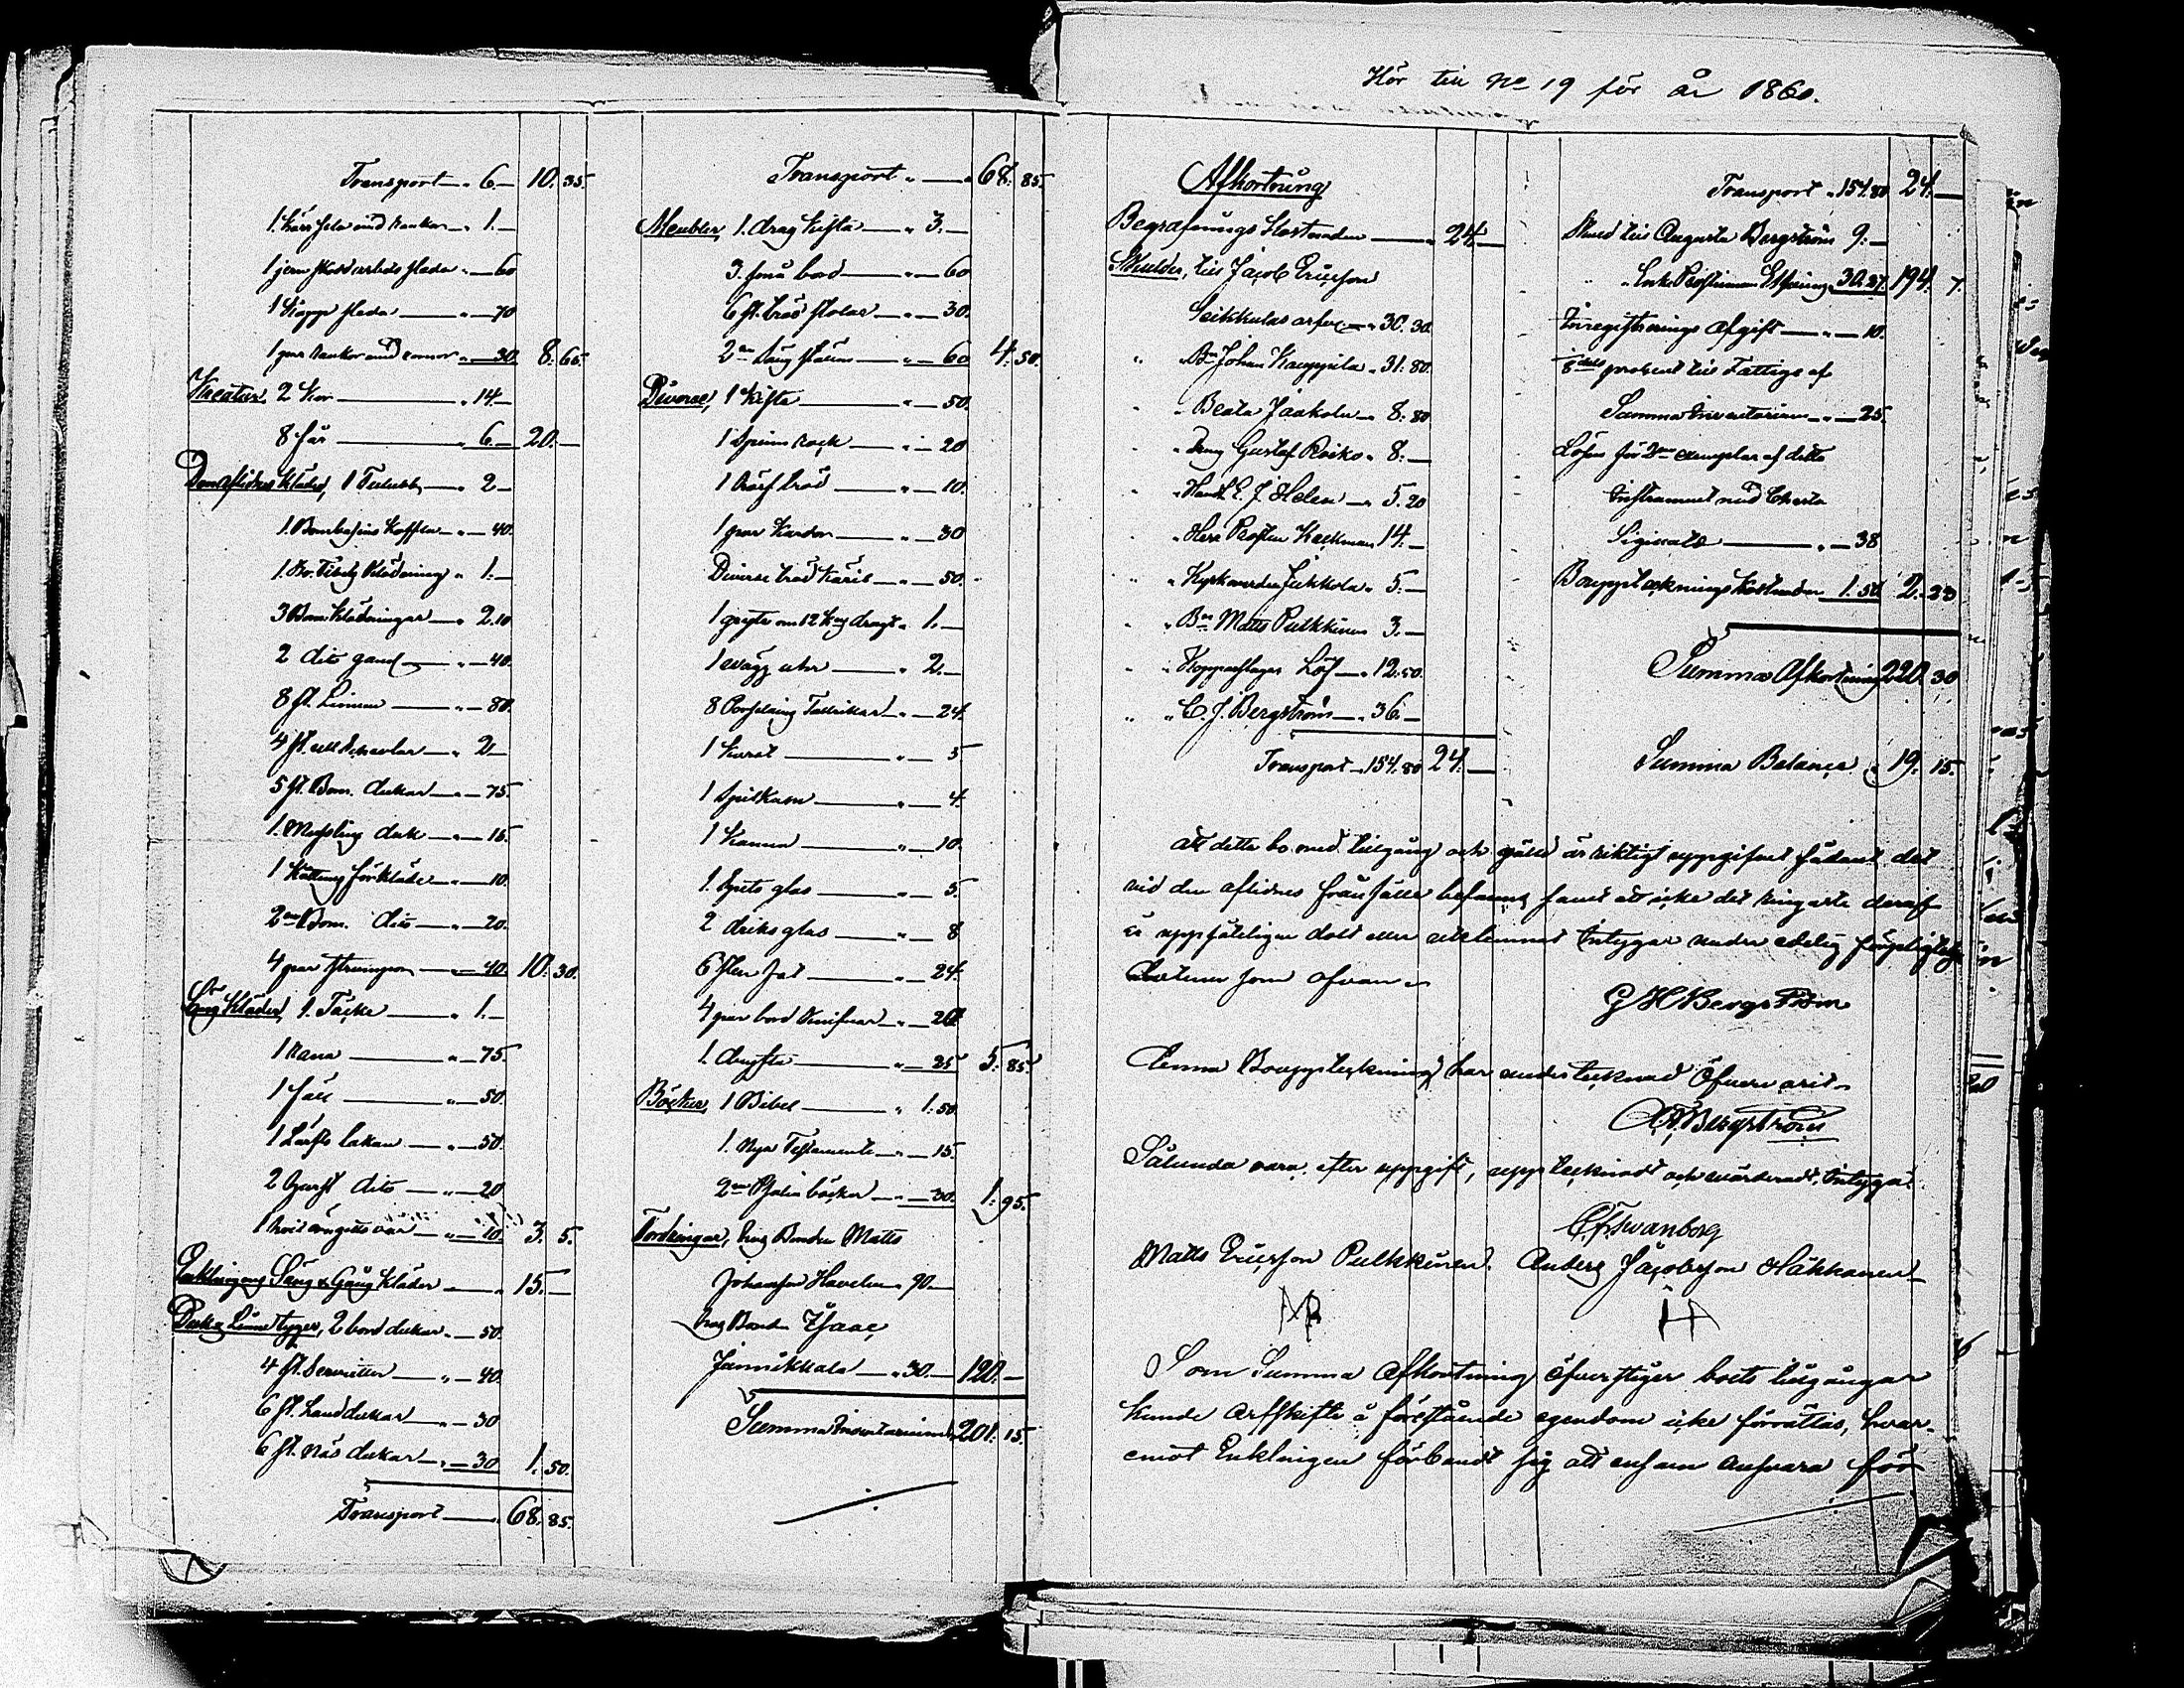 Hör till No 19 för år 1860.
Transport „ 6.— 10. 35.
1. Kärr med „ 1.—
1 jern skodd arbets släda „ — 60
1 Kapp släda „ — 70
1 par med „ — 30. 8. 65.
Kreatur, 2 Kor „ 14.—
8 får „ 6.— 20.—
Den aflidnes kläder, 1 Tulubb „ 2.—
1. Bombasins Kofta „ — 40.
1. Klädning „ 1.—
3 Bom. Klädningar „ 2.10
2 dito gamla „ — 40.
8 st. Linnen „ — 80.
4 st. ull „ 2.—
5 st. Bom. dukar „ — 75.
1. Musslins duk „ — 15.
1 Kattuns förkläde „ — 10.
2ne Bom. dito „ — 20.
4 par strumpor „ — 40. 10. 30.
Säng Kläder, 1. Täcke „ 1.—
1 Rana „ — 75.
1 fäll „ — 50.
1 Lärfts lakan „ — 50.
2 dito „ — 20
1 örngotts var „ — 10. 3. 5.
Enklingens Säng & Gång Kläder „ 15.—
Duk & Linne tyger, 2 bord dukar „ — 50.
4 st. Servietter „ — 40.
6 st. handdukar „ — 30
6 st. näsdukar „ — 30 1. 50.
Transport 68. 85.
Transport „ 68. 85.
Meubler, 1. drag kista „ 3.—
3. små bord „ — 60
6 st. träd stolar „ — 30.
2ne säng ställen „ — 60 4. 50.
Diverse, 1 Kista „ — 50.
1 Spinn rock „ — 20
1 träd „ — 10.
1 par Kardor „ — 30
Diverse träd käril „ — 50.
1 gryta om 12 „ 1.—
1 vägg uhr „ 2.—
8 Porslains Tallrikar „ — 24.
1 „ — 5
1 Spilkum „ — 4.
1 Kanna „ — 10.
1. Spets glas „ — 5.
2 driks glas „ — 8
6 Sten fat „ — 24.
4 par bord Knifvar „ — 20
1. „ — 25 5. 85.
Böcker, 1 Bibel „ 1. 50.
1. Nya Testamente „ — 15.
2ne Psalm böcker „ — 30. 1. 95.
Fordringar, hos Bonden Matts
Johansson Havelin „ 90.—
hos Bonden Isaac
Jännikkala „ 30.— 120.—
Summa Inventarium 201. 15.
Afkortning
Begrafnings Kostnaden „ 24.—
Skulder, till Jacob Ericsson
Seikkulas arfve „ 30. 30.
„ Bn Johan Kauppila „ 31. 80.
„ Beata Jaakola „ 8. 80
„ Dreng Gustaf Roiko „ 8.—
„ Handl. E. J. Helen „ 5. 20
„ Herr Prosten Keckman 14.—
„ „ Kyrkovärden Jukkola „ 5.—
„ „ Bn Matts Pulkkinen 3.—
„ „ Kopparslagar Löf „ 12. 50.
„ „ C. J. Bergström „ 36.—
Transport „ 154. 80 24.—
Transport „ 154. 80 24.—
Skuld till Augusta Bergström 9.—
„ Enke Prostinnan 30. 27. 194. 7.
Inregistrerings afgift „ — 10.
procent till Fattige af
Summa Inventarium „ — 25.
Lösen för 2ne exemplar af detta
Instrument med Charta
Sigillata „ — 38
Boupptecknings Kostnaden 1. 50 2. 23
Summa Afkortning 220. 30
Summa Balance 19. 15.
att detta bo med tillgång och gäld är riktigt uppgifvet sådant det
vid den aflidnes frånfälle befanns samt att icke det ringaste deraf
är uppsåtligen doldt eller utelemnat Intygar under edelig förpligtelse
Datum som ofvan.
G H Bergström
Denna Bouppteckning har undertecknad öfvervarit.
Bergström
Sålunda vara, efter uppgift, upptecknadt och värderadt, Intyga:
Svanberg
Matts Ericsson Pulkkinen. Anders Jacobsson Häkkanen
Som Summa Afkortning öfverstiger boets tillgångar
kunde arfskifte å förestående egendom icke förrättas, hvar-
emot Enklingen förbandt sig att ensam ansvara för